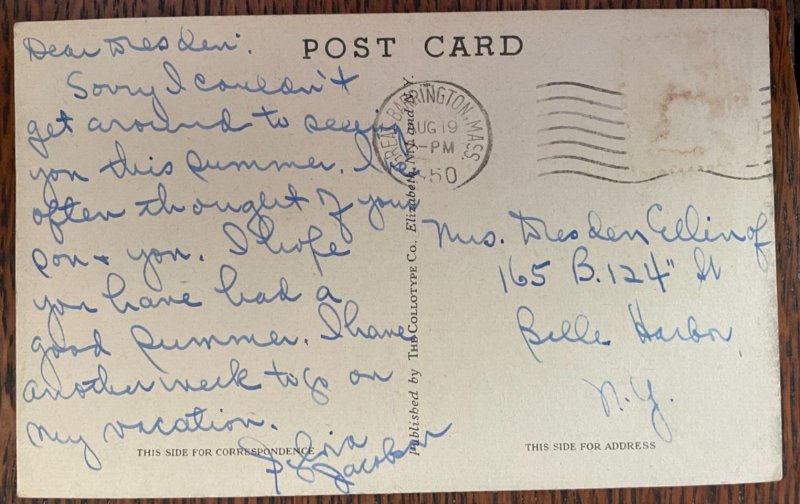 POST CARD
Dear Dresden:
Sorry I couldn't
get around to seeing
you this summer. I've
often thought of your
son & you. I hope
you have had a
good summer. I have
another week to go on
my vacation.
Sylvia
Jacobson
GREAT BARRINGTON, MASS.
AUG 19
-PM
1950
Published by THE COLLOTYPE CO., Elizabeth, N.J. and N.Y.
Mrs. Dresden Ellinof
165 B. 124" St
Belle Harbor
N.Y.
THIS SIDE FOR CORRESPONDENCE
THIS SIDE FOR ADDRESS